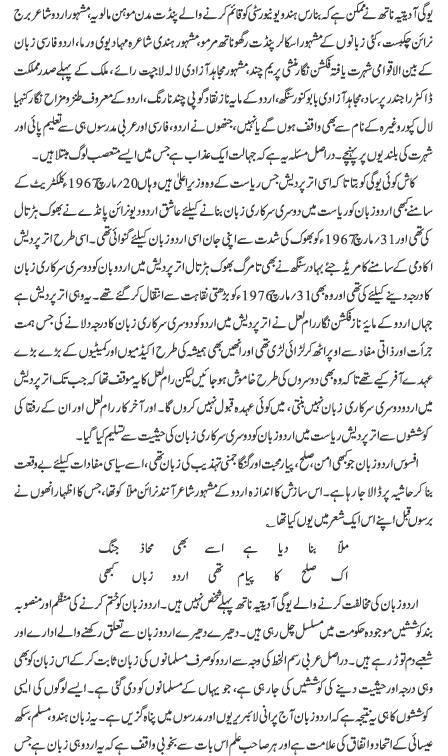 یوگی آدیتیہ ناتھ نے ممکن ہے کہ بنارس ہندو یونیورسٹی کو قائم کرنے والے پنڈت مدن موہن مالویہ، مشہور اردو شاعر برج
نرائن چکبست، کئی زبانوں کے مشہور اسکالر پنڈت رگھوناتھ مرمو، مشہور ہندی شاعرہ مہادیوی ورما، اردو فارسی زبان
کے بین الاقوامی شہرت یافتہ فکشن نگار منشی پریم چند، مجاہد آزادی لالہ لاجپت رائے، ملک کے پہلے صدر مملکت
ڈاکٹر راجندر پرساد، مجاہد آزادی بابو کنور سنگھ، اردو کے مایہ ناز نقاد گوپی چند نارنگ، اردو کے معروف طنز و مزاح نگار کنہیا
لال کپور وغیرہ کے نام سے بھی واقف ہوں گے یا نہیں، جنھوں نے اردو، فارسی اور عربی مدرسوں ہی سے تعلیم پائی اور
شہرت کی بلندیوں پر پہنچے۔ دراصل مسئلہ یہ ہے کہ جہالت ایک عذاب ہے جس میں ایسے متعصب لوگ مبتلا ہیں۔
کاش کوئی یوگی کو بتاتا کہ اسی اتر پردیش جس ریاست کے وہ وزیراعلیٰ ہیں وہاں 20؍مارچ 1967ء کلکٹریٹ کے
سامنے بھی اردو زبان کو ریاست میں دوسری سرکاری زبان بنانے کیلئے عاشق اردو دیو نرائن پانڈے نے بھوک ہڑتال
کی تھی اور 31؍مارچ 1967ء کو بھوک کی شدت سے اپنی جان اسی اردو زبان کیلئے گنوائی تھی۔ اسی طرح اتر پردیش
اکادمی کے سامنے کامریڈ جئے بہادر سنگھ نے بھی تا مرگ بھوک ہڑتال اتر پردیش میں اردو زبان کو دوسری سرکاری زبان
کا درجہ دینے کیلئے کی تھی اور وہ بھی 31؍مارچ 1976ء کو بڑھتی نقاہت سے انتقال کر گئے تھے۔ یہ وہی اتر پردیش ہے
جہاں اردو کے مایہ ناز فکشن نگار رام لعل نے اتر پردیش میں اردو کو دوسری سرکاری زبان کا درجہ دلانے کی جس ہمت
جرأت اور ذاتی مفاد سے اوپر اٹھ کر لڑائی لڑی تھی اور انھیں بھی ہمیشہ کی طرح اکیڈمیوں اور کمیٹیوں کے بڑے بڑے
عہدے آفر کیے تھے تا کہ وہ بھی دوسروں کی طرح خاموش ہو جائیں لیکن رام لعل کا یہ موقف تھا کہ جب تک اتر پردیش
میں اردو دوسری سرکاری زبان نہیں بنتی، میں کوئی عہدہ قبول نہیں کروں گا۔ اور آخر کار رام لعل اور ان کے رفقا کی
کوششوں سے اتر پردیش ریاست میں اردو کو دوسری سرکاری زبان کی حیثیت سے تسلیم کیا گیا۔
افسوس اردو زبان جو کبھی امن، صلح، پیار محبت اور گنگا جمنی تہذیب کی زبان تھی، اسے سیاسی مفادات کیلئے بے وقعت
بنا کر حاشیہ پر ڈالا جا رہا ہے۔ اس سازش کا اندازہ اردو کے مشہور شاعر آنند نرائن ملّا کو تھا، جس کا اظہار انھوں نے
برسوں قبل اپنے اس ایک شعر میں یوں کیا تھا ؂
ملّا بنا دیا ہے اسے بھی محاذ جنگ
اک صلح کا پیام تھی اردو زباں کبھی
اردو زبان کی مخالفت کرنے والے یوگی آدیتیہ ناتھ پہلے شخص نہیں ہیں۔ اردو زبان کو ختم کرنے کی منظم اور منصوبہ
بند کوششیں موجودہ حکومت میں مسلسل چل رہی ہیں۔ دھیرے دھیرے اردو زبان سے تعلق رکھنے والے ادارے اور
شعبے دم توڑ رہے ہیں۔ دراصل عربی رسم الخط کی وجہ سے اردو کو صرف مسلمانوں کی زبان ثابت کر کے اس زبان کو بھی
وہی درجہ اور حیثیت دینے کی کوششیں کی جا رہی ہے، جو یہاں کے مسلمانوں کو دی گئی ہے۔ ایسے لوگوں کی ایسی
کوششوں کا ہی یہ نتیجہ ہے کہ اردو زبان آج پرانی لائبریریوں اور مدرسوں میں پناہ گزیں ہے۔ یہ زبان ہندو، مسلم، سکھ
عیسائی کے اتحاد و اتفاق کی علامت ہے اور ہر صاحب علم اس بات سے بخوبی واقف ہے کہ یہ اردو ہی زبان ہے جس